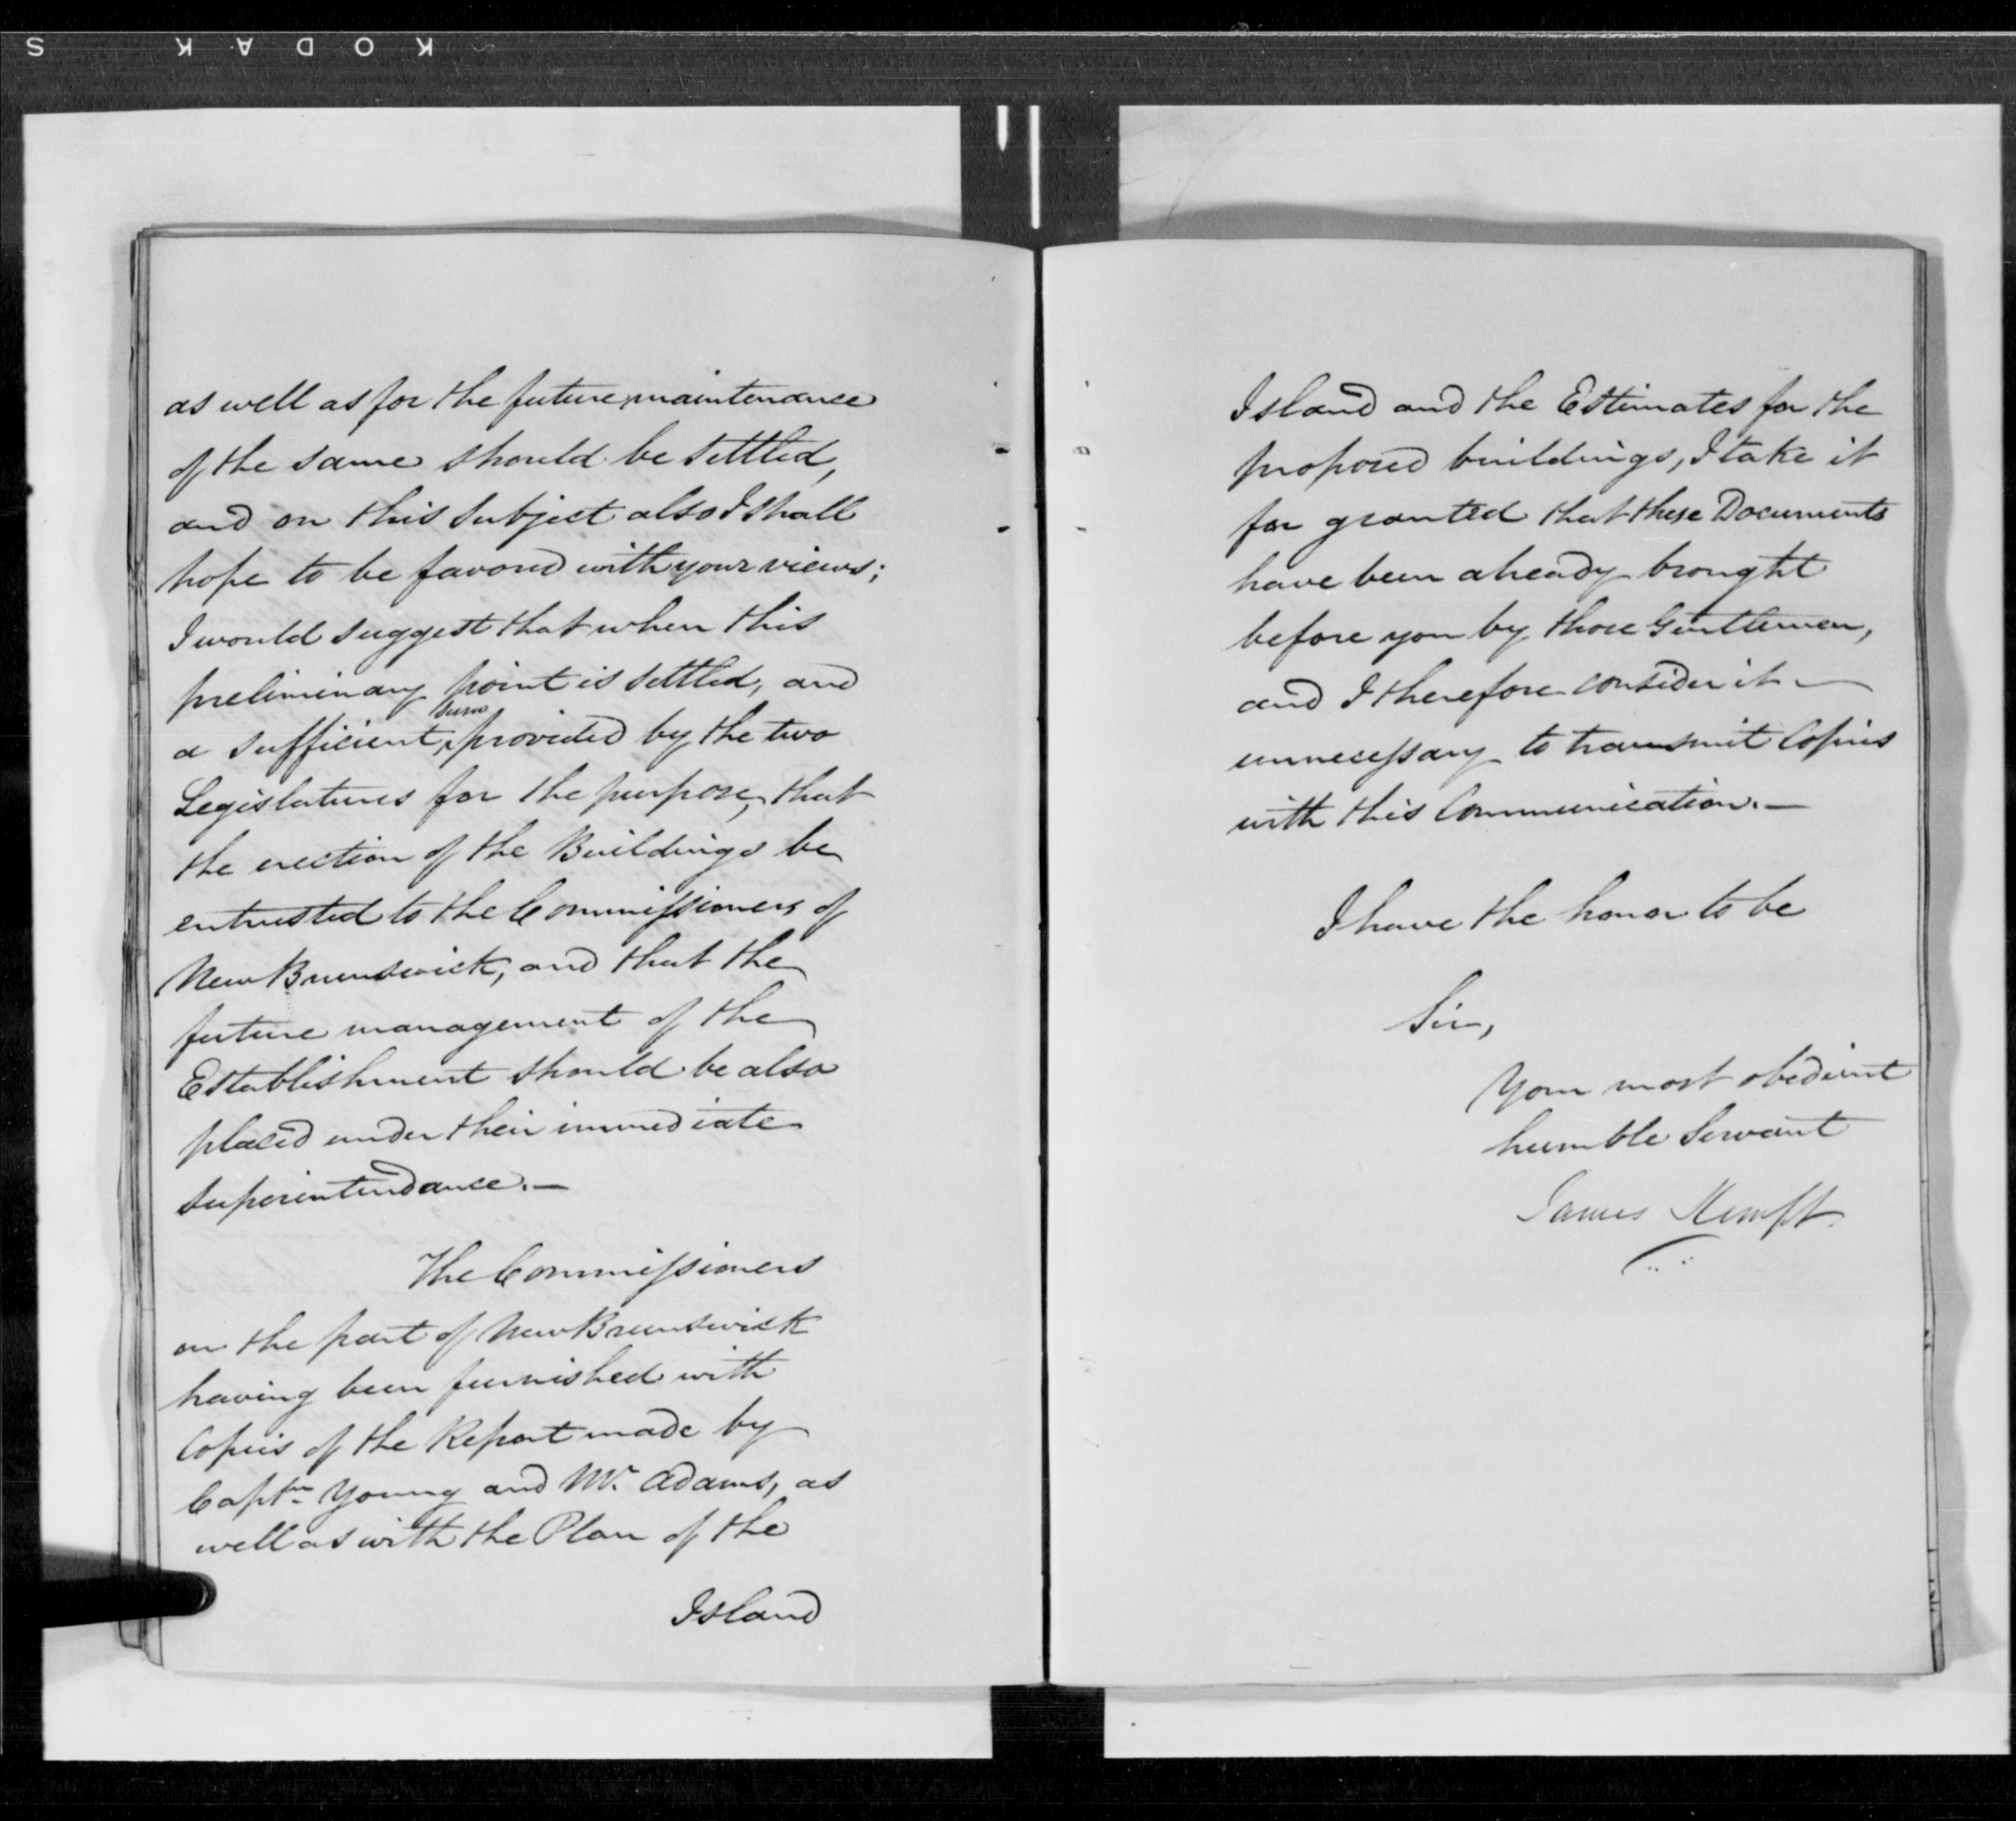 KODAK S
as well as for the future maintenance
of the same should be settled,
and on this subject also I shall
hope to be favored with your views;
I would suggest that when this
preliminary point is settled, and
sum
a sufficient ^ provided by the two
Legislatures for the purpose, that
the erection of the Buildings be
entrusted to the Commissioners of
New Brunswick, and that the
future management of the
Establishment should be also
placed under their immediate
Superintendance. —
The Commissioners
on the part of New Brunswick
having been furnished with
Copies of the Report made by
Captn. Young and Mr. Adams, as
well as with the Plan of the
Island
Island and the Estimates for the
proposed buildings, I take it
for granted that these Documents
have been already brought
before you by those Gentlemen,
and I therefore consider it —
unnecessary to transmit Copies
with this Communication. —
I have the honor to be
Sir,
Your most obedient
humble Servant
James Kempt